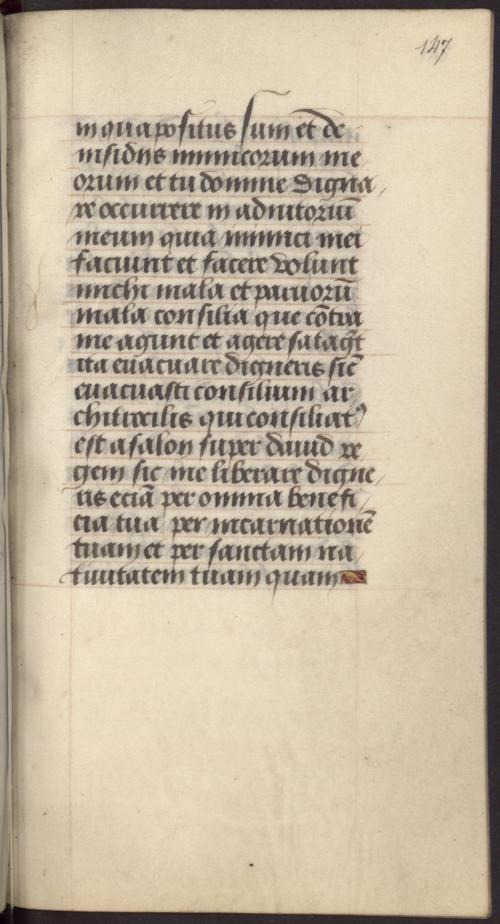 147
in qua positus sum et de
insidiis inimicorum me
orum et tu domine Digna
re occurrere in adiutoriū
meum quia inimici mei
faciunt et facere volunt
michi mala et paruorū
mala consilia que cōtra
me agunt et agere satagūt
ita euacuare digneris sic̄
euacuasti consilium ar
chitroclis qui consiliat⁹
est asalon super dauid re
gem sic me liberare digne
ris eciā per omnia benefi
cia tua per incarnationē
tuam et per sanctam na
tiuitatem tuam quam